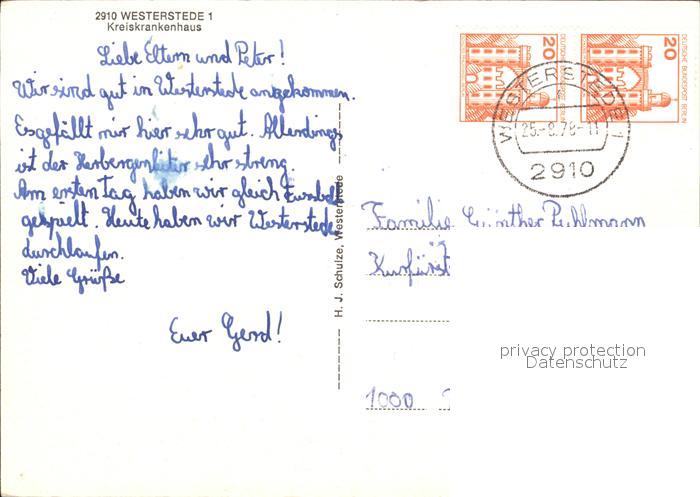 2910 WESTERSTEDE 1
Kreiskrankenhaus
Liebe Eltern und Peter!
Wir sind gut in Westerstede angekommen.
Es gefällt mir hier sehr gut. Allerdings
ist der Herbergenleiter sehr streng.
Am ersten Tag haben wir gleich Fussball
gespielt. Heute haben wir Westerstede
durchlaufen.
Viele Grüße
Euer Gerd!
H. J. Schulze, Westerstede
20
DEUTSCHE BUNDESPOST BERLIN
20
DEUTSCHE BUNDESPOST BERLIN
WESTERSTEDE 1
2910
Familie Günther
1000
privacy protection
Datenschutz